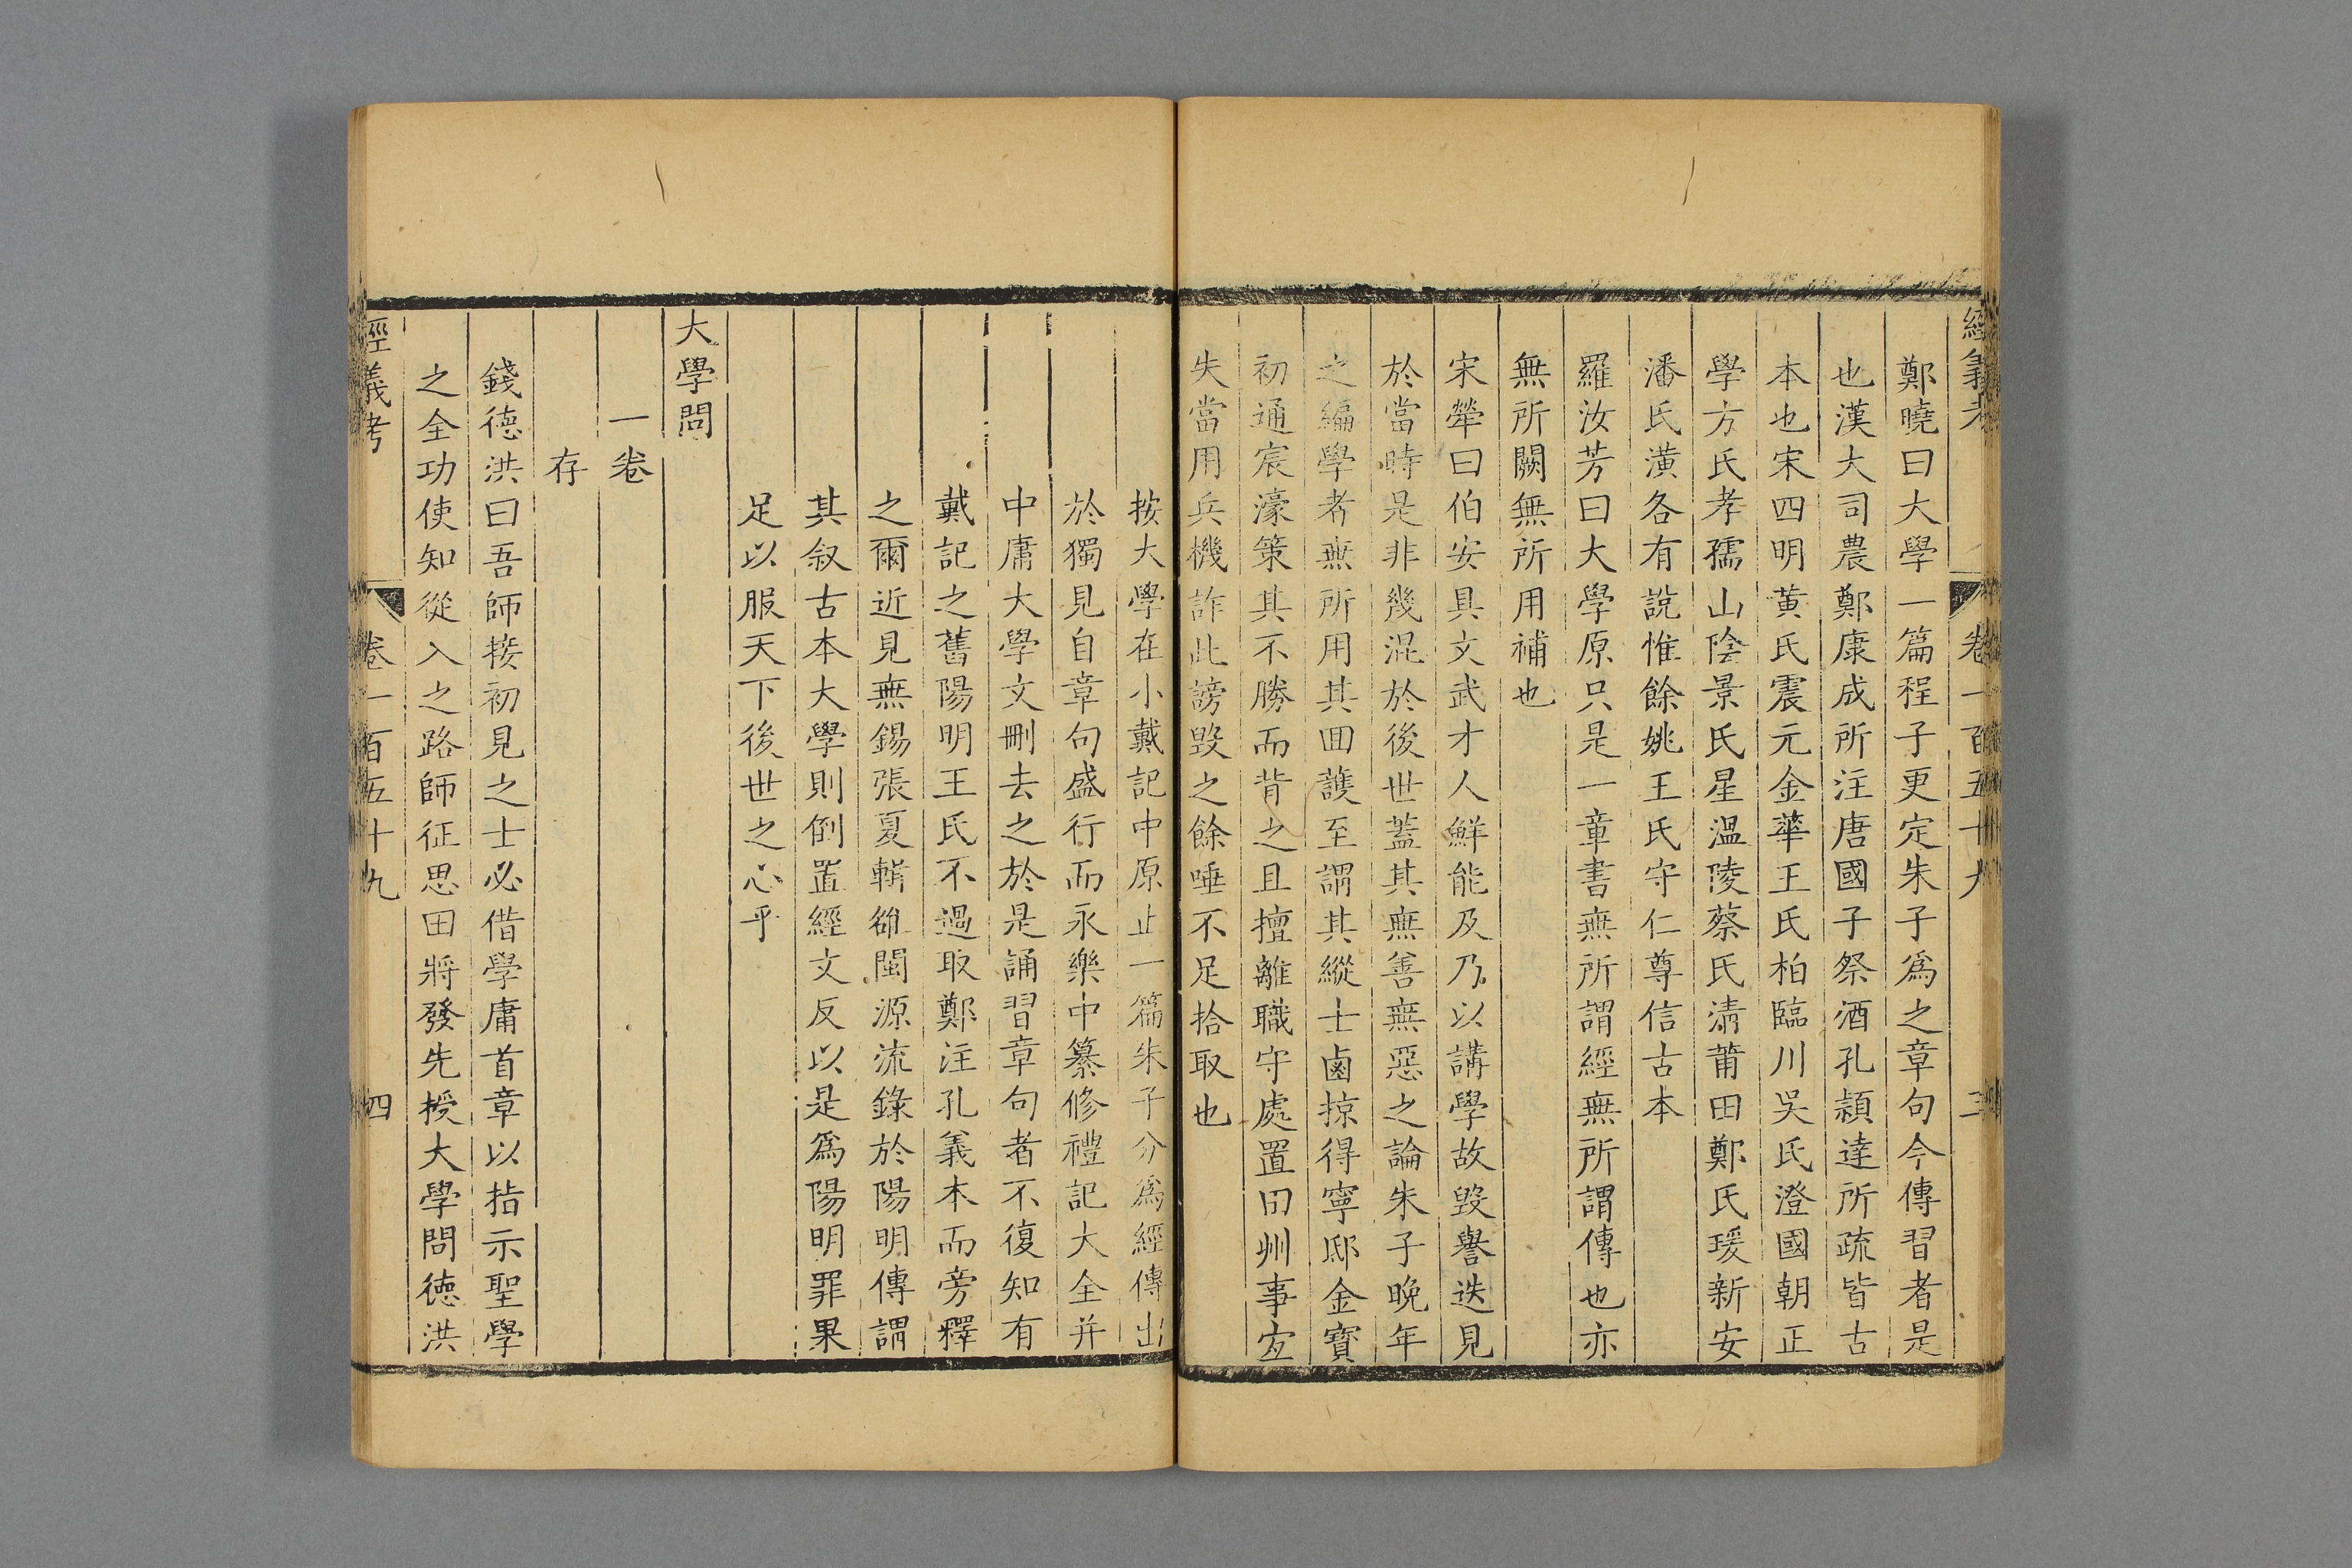 經義考 卷一百五十九 三
鄭曉曰大學一篇程子更定朱子爲之章句今傳習者是
也漢大司農鄭康成所注唐國子祭酒孔穎達所疏皆古
本也宋四明黄氏震元金華王氏柏臨川吳氏澄國朝正
學方氏孝孺山陰景氏星溫陵蔡氏清莆田鄭氏瑗新安
潘氏潢各有說惟餘姚王氏守仁尊信古本
羅汝芳曰大學原只是一章書無所謂經無所謂傳也亦
無所闕無所用補也
宋犖曰伯安具文武才人鮮能及乃以講學故毀譽迭見
於當時是非幾混於後世蓋其無善無惡之論朱子晚年
之編學者無所用其回護至謂其縱士鹵掠得寧邸金寶
初通宸濠策其不勝而背之且擅離職守處置田州事宐
失當用兵機詐此謗毀之餘唾不足拾取也
按大學在小戴記中原止一篇朱子分爲經傳出
於獨見自章句盛行而永樂中纂修禮記大全并
中庸大學文刪去之於是誦習章句者不復知有
戴記之舊陽明王氏不過取鄭注孔義本而旁釋
之爾近見無錫張夏輯雒閩源流錄於陽明傳謂
其叙古本大學則倒置經文反以是爲陽明罪果
足以服天下後世之心乎
大學問
一卷
存
錢德洪曰吾師接初見之士必借學庸首章以指示聖學
之全功使知從入之路師征思田將發先授大學問德洪
經義考 卷一百五十九 四